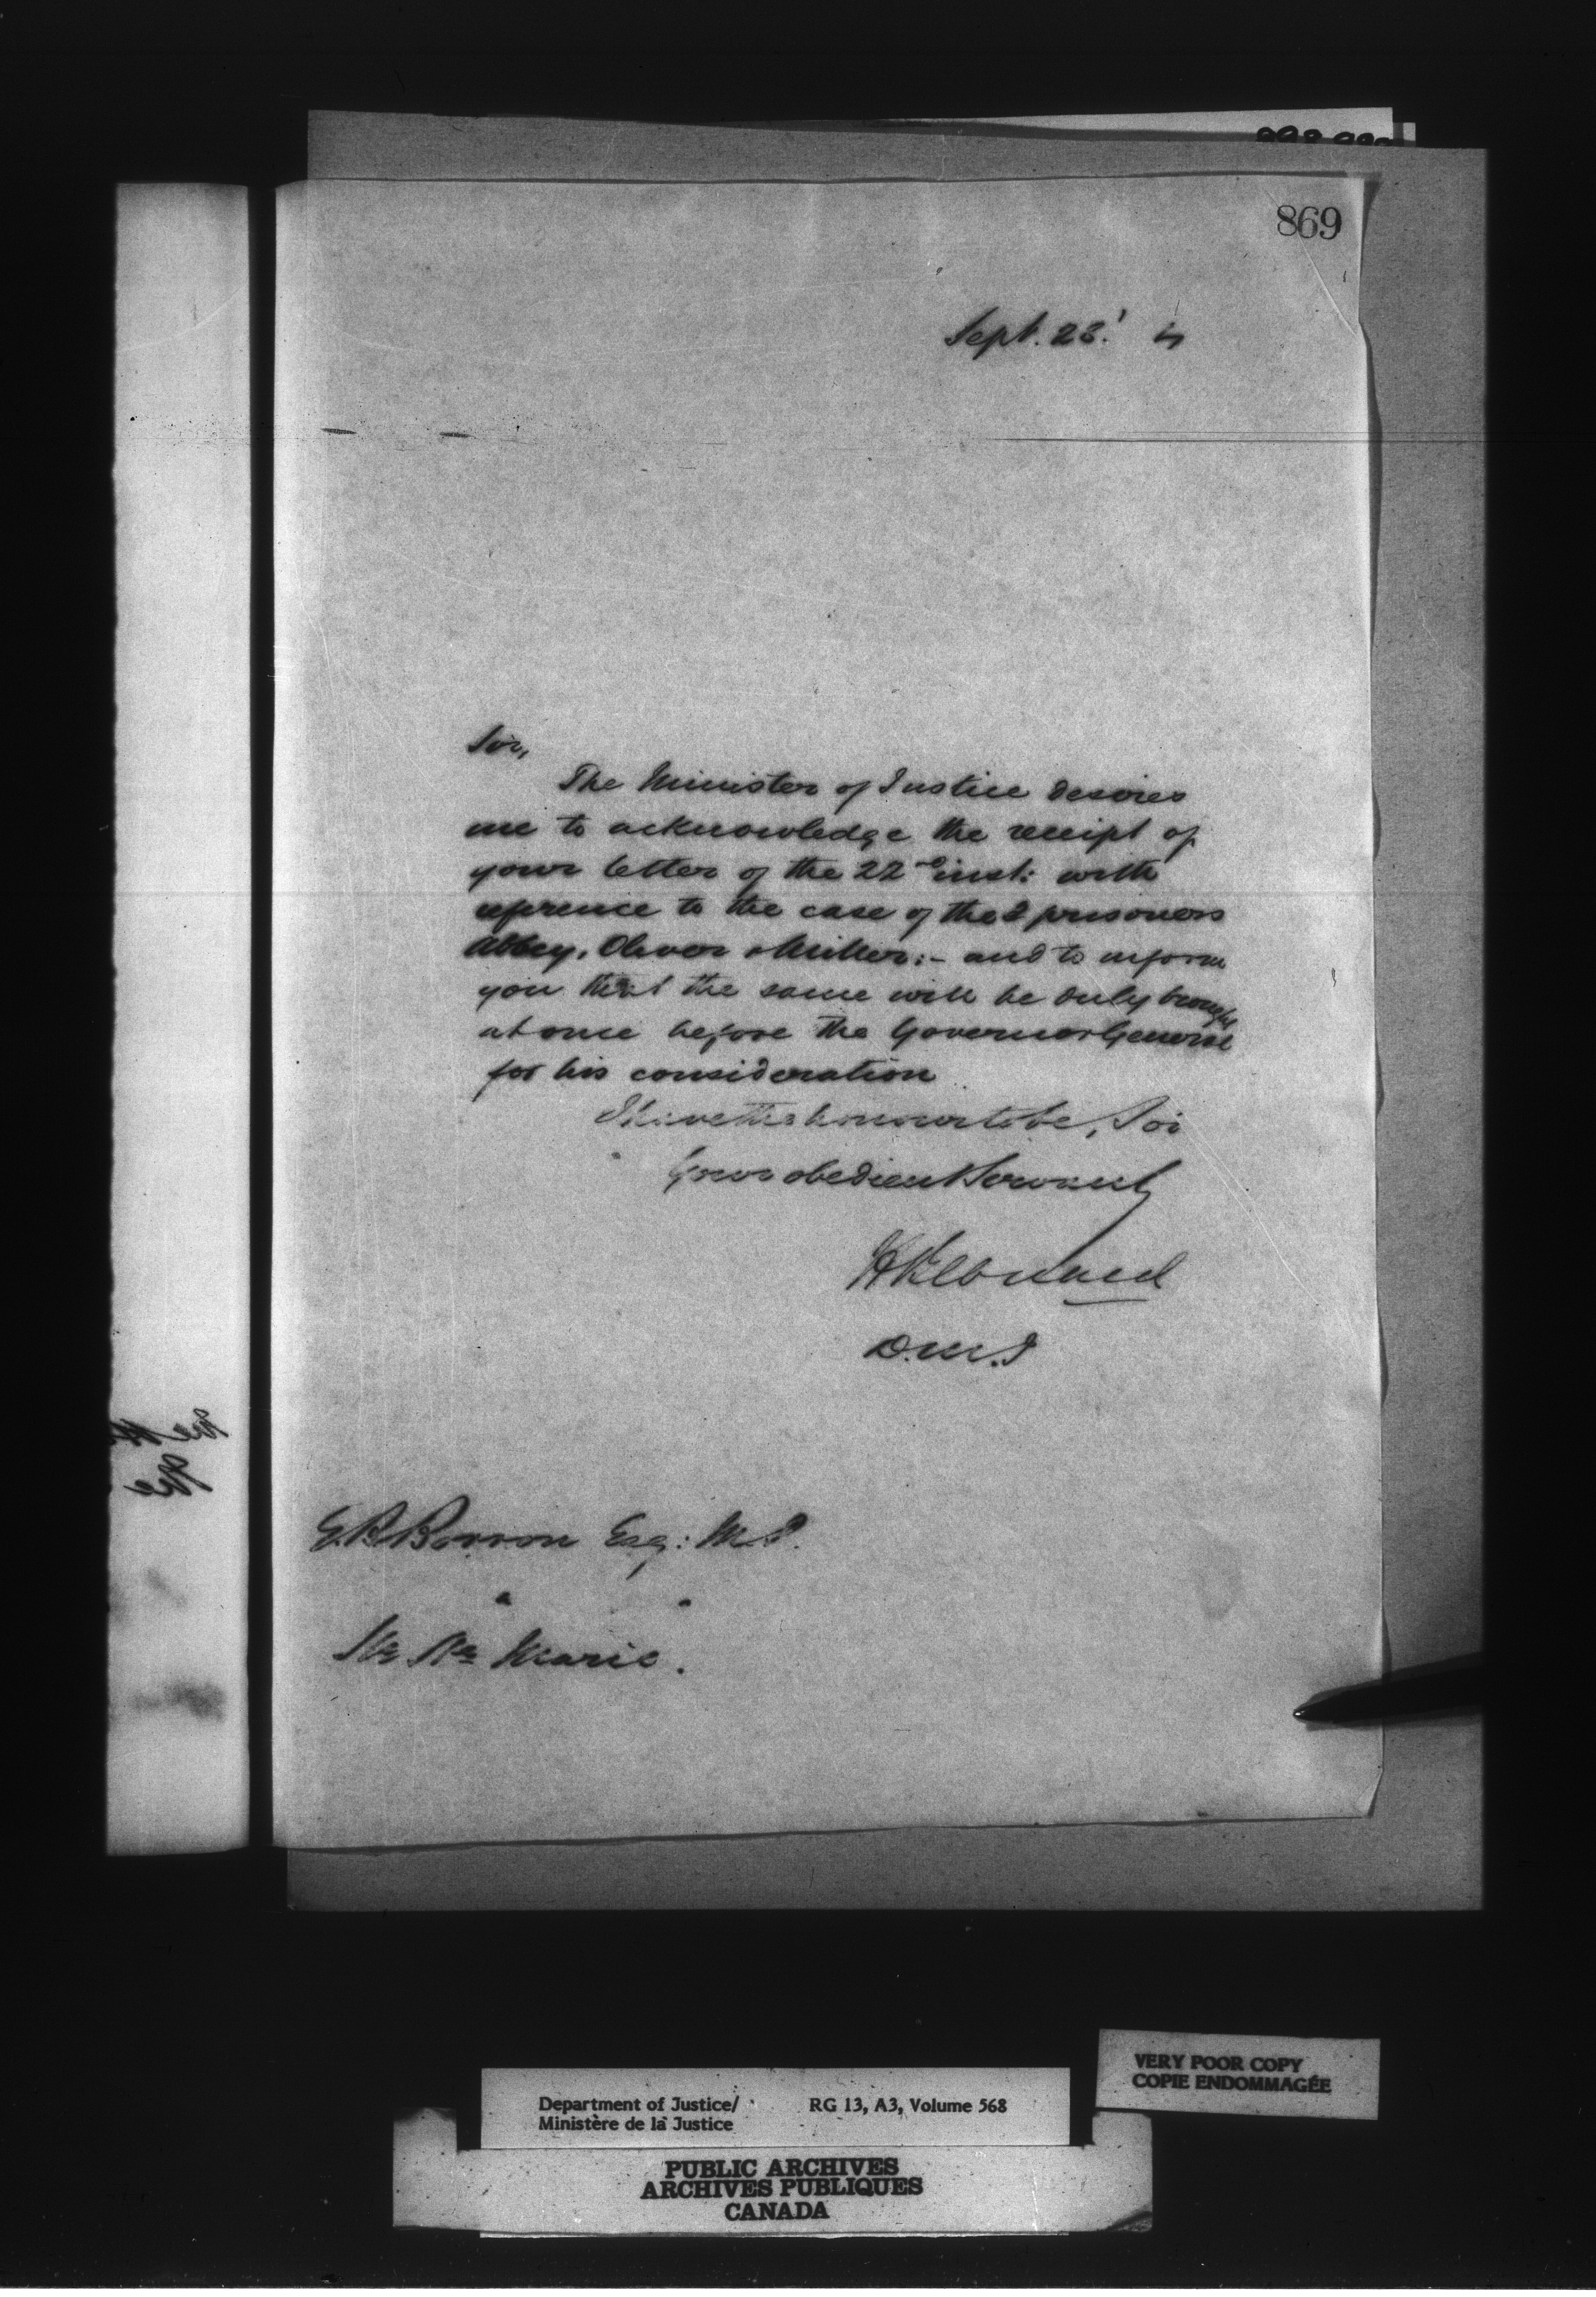 869
Sept. 23.
Sir,
The Minister of Justice desires
me to acknowledge the receipt of
your letter of the 22nd inst: with
reference to the case of the prisoners
Abbey, Oliver & Miller:- and to inform
you that the same will be duly brought
at once before the Governor General
for his consideration
I have the honour to be, Sir
Your obedient Servant
H Bernard
D.M.J
E.B. Borron Esq: M.P.
Marie.
VERY POOR COPY
COPIE ENDOMMAGÉE
Department of Justice/ RG 13, A3, Volume 568
Ministère de la Justice
PUBLIC ARCHIVES
ARCHIVES PUBLIQUES
CANADA